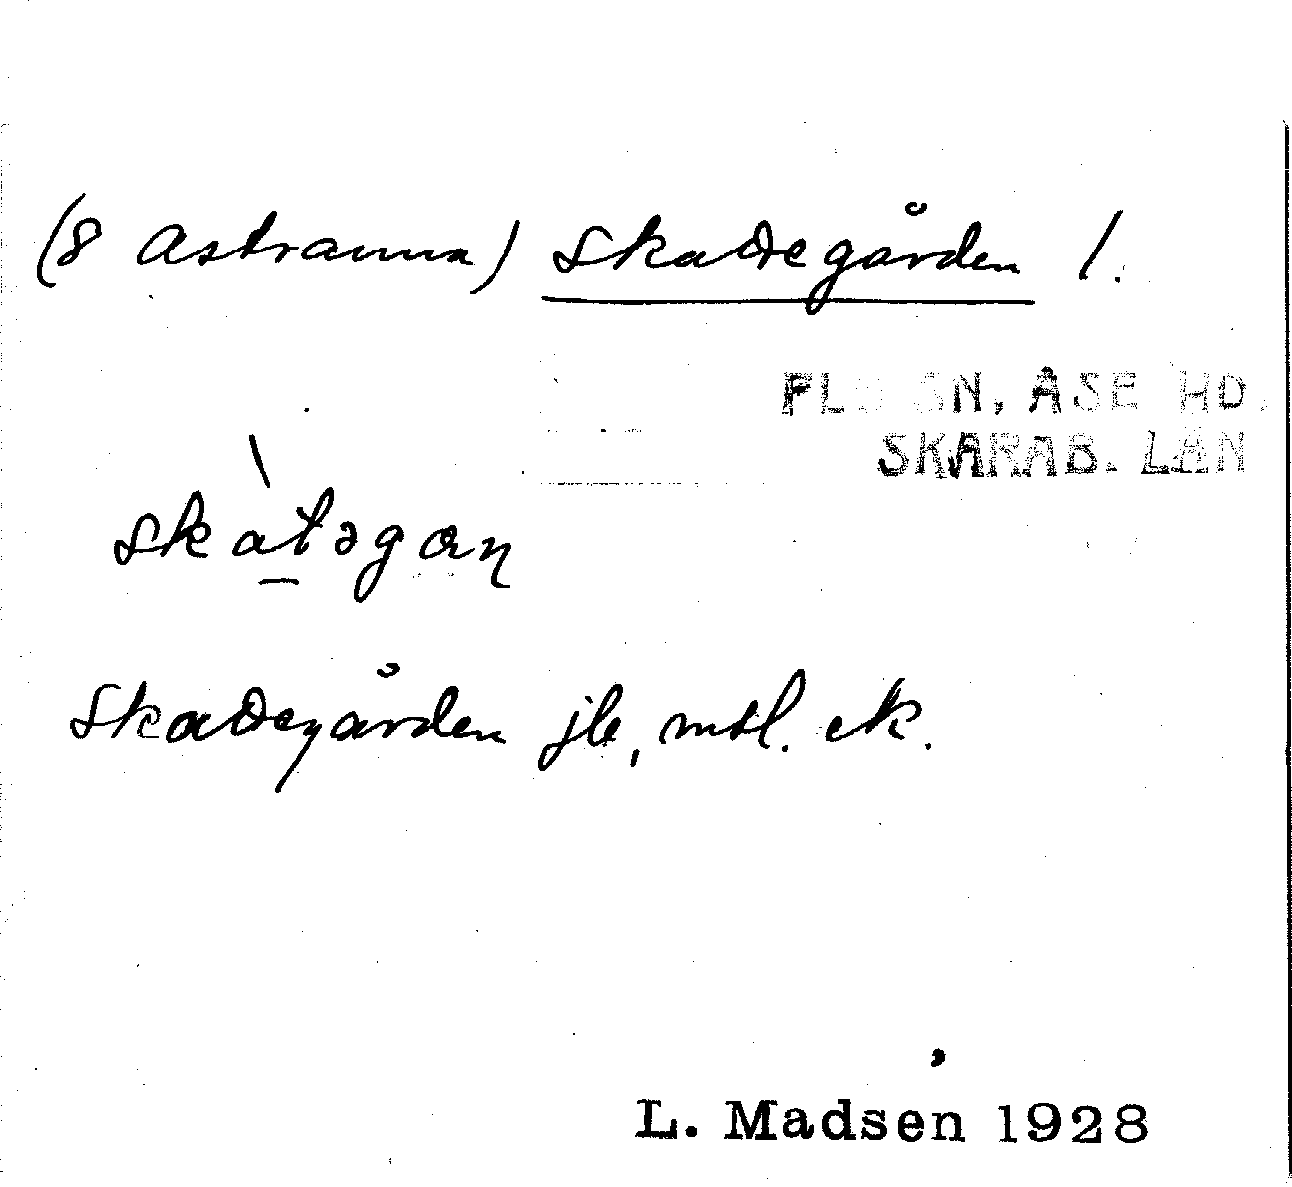 (8 Astranna) Skattegården 1.
FLO SN, ÅSE HD.
SKARAB. LÄN
skàtəgaɳ
Skattegården jb, mtl. ek.
L. Madsen 1928